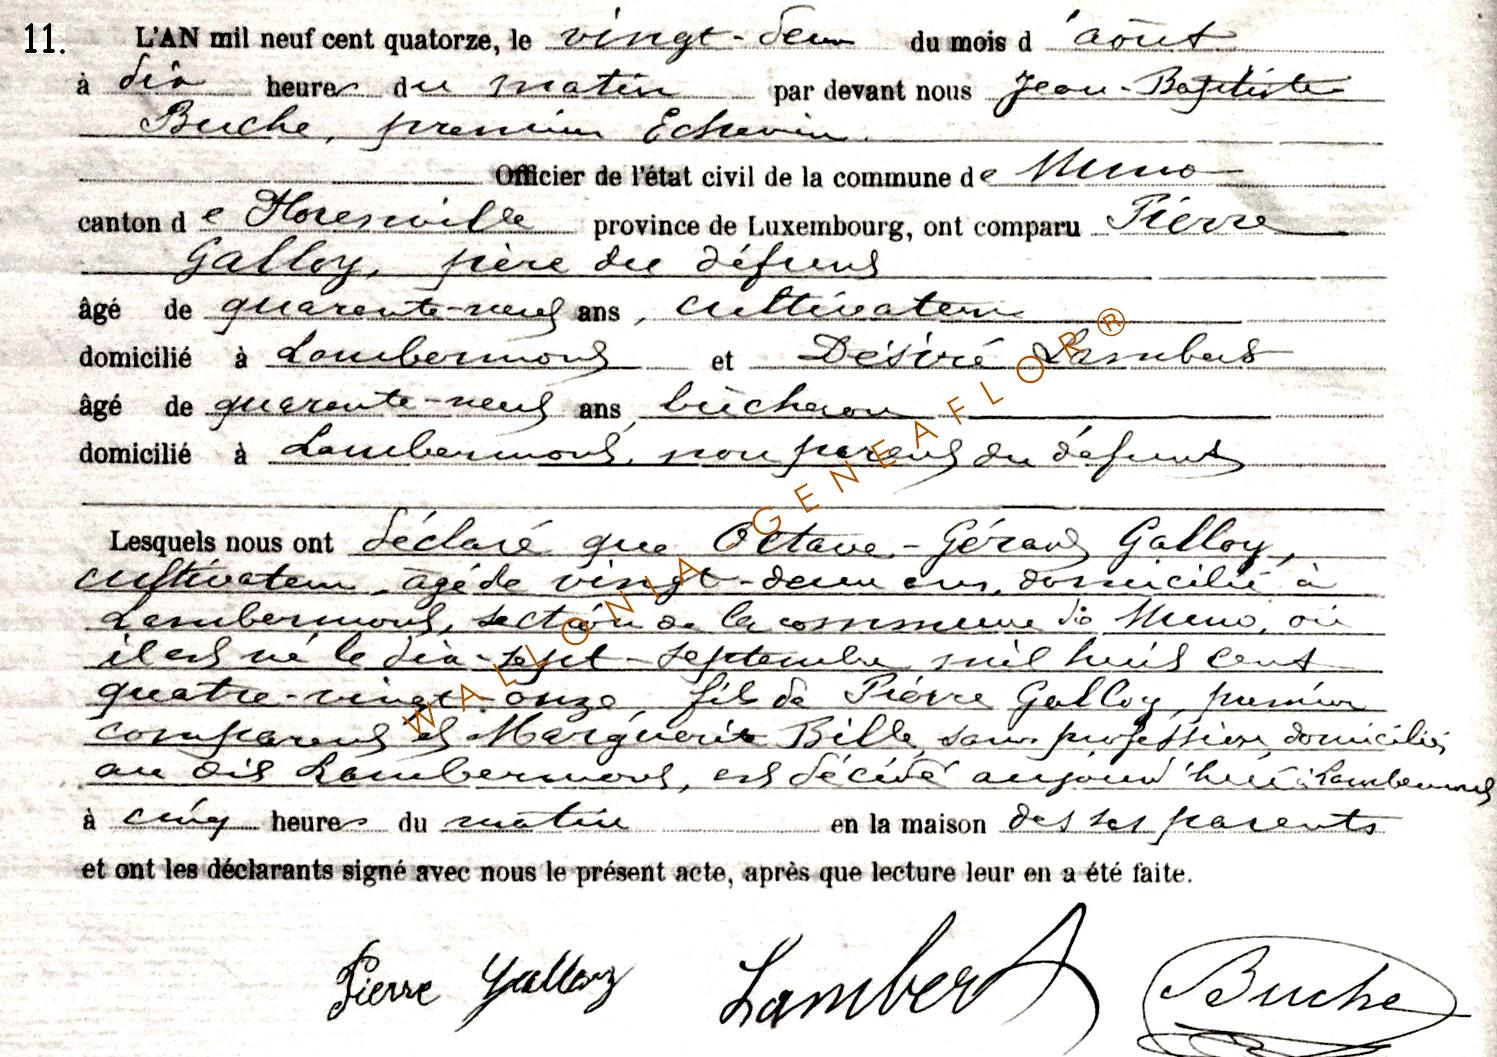 11. L'AN mil neuf cent quatorze, le vingt-deux du mois d'août
à dix heures du matin par devant nous Jean-Baptiste
Buche, premier Echevin.
Officier de l'état civil de la commune de Muno
canton de Florenville province de Luxembourg, ont comparu Pierre
Galloy, père du défunt
âgé de quarante-neuf ans, cultivateur
domicilié à Lambermont et Désiré Lambert
âgé de quarante-neuf ans, bûcheron
domicilié à Lambermont, non parent du défunt
Lesquels nous ont déclaré que Octave-Gérard Galloy,
cultivateur, âgé de vingt-deux ans, domicilié à
Lambermont, section de la commune de Muno, où
il est né le dix-sept-septembre mil huit cent
quatre-vingt-onze, fils de Pierre Galloy, premier
comparant et Marguerite Bille, sans profession, domiciliés
au dit Lambermont, est décédé aujourd'hui à Lambermont
à cinq heures du matin en la maison des ses parents
et ont les déclarants signé avec nous le présent acte, après que lecture leur en a été faite.
Pierre Galloy Lambert Buche
WALLONIA GENEAFLOR®